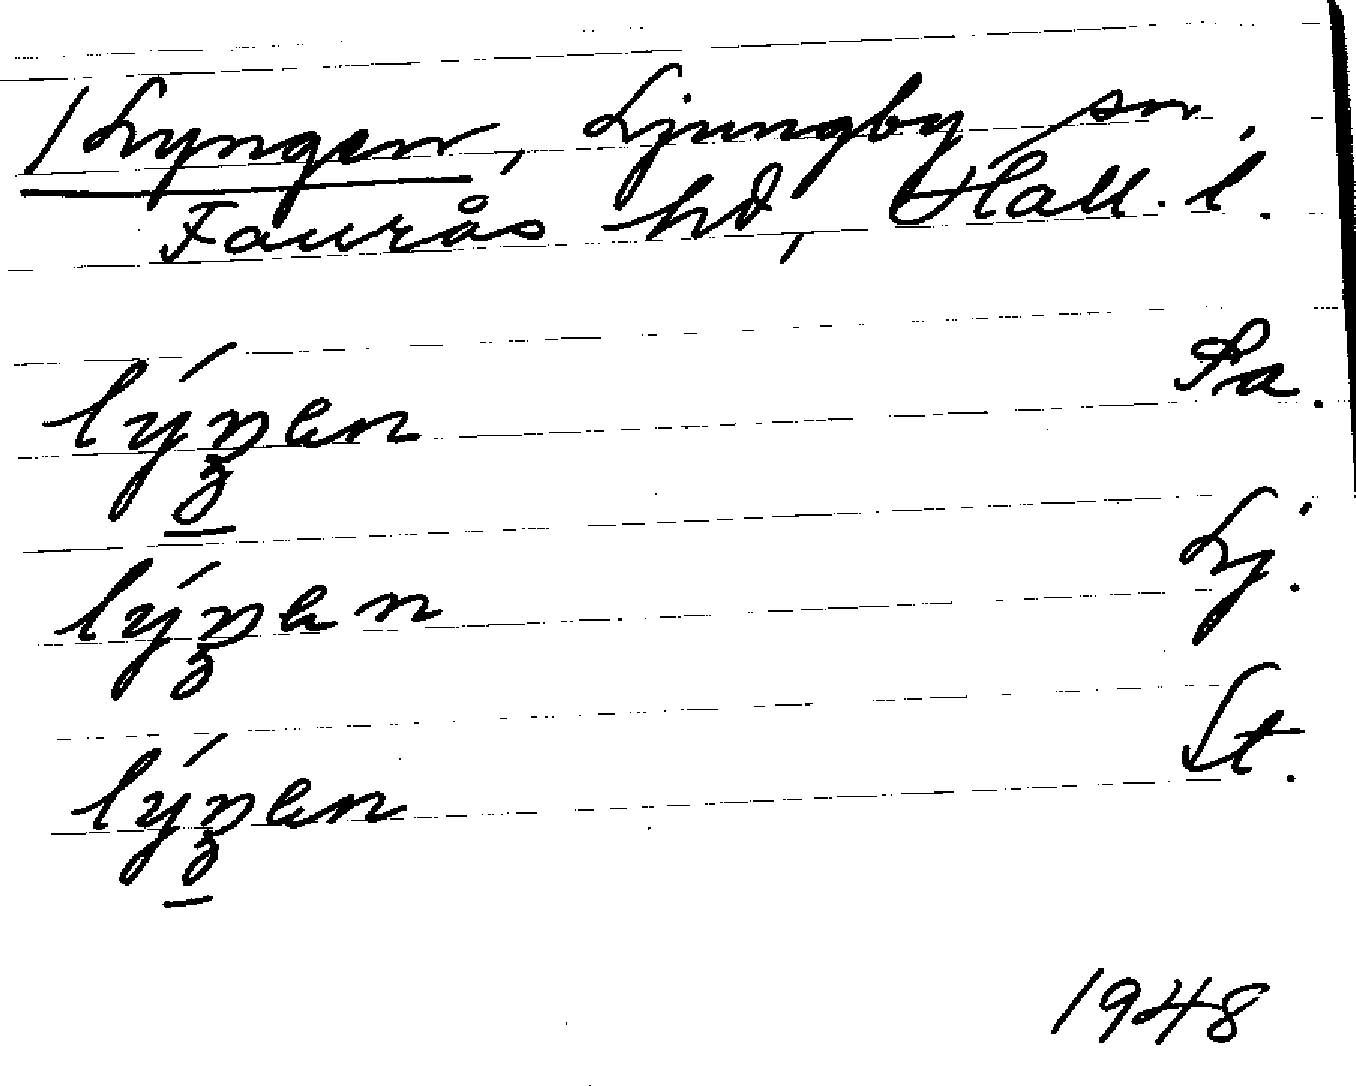 / Lyngen, Ljungby sn,
Faurås hd, Hall. l.
lýŋen Fa.
lýŋen Lj.
lýŋen St.
1948